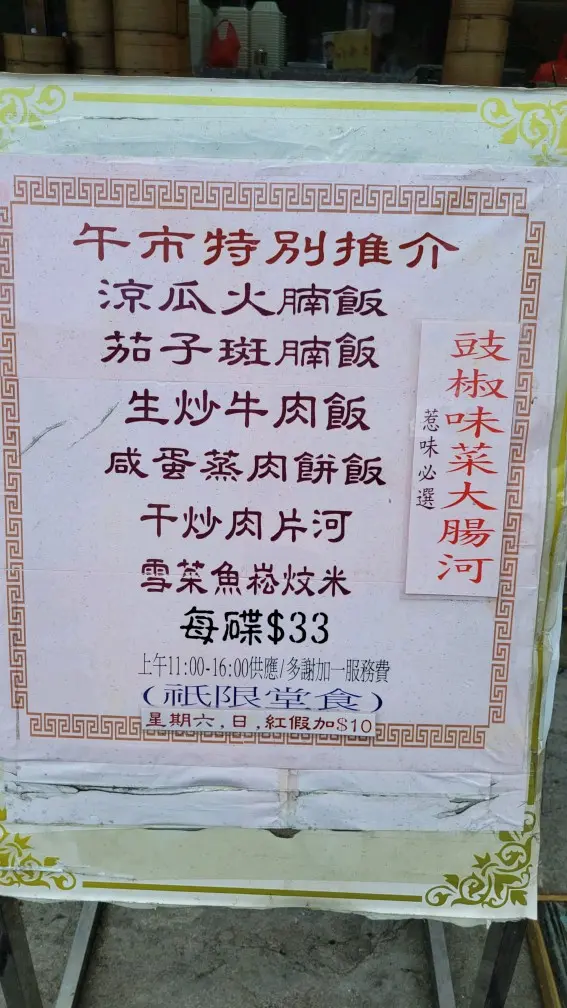 午市特別推介
涼瓜火腩飯
茄子斑腩飯
生炒牛肉飯
咸蛋蒸肉餅飯
干炒肉片河
雪菜魚崧炆米
每碟$33
上午11:00-16:00供應/多謝加一服務費
(祇限堂食)
星期六,日,紅假加$10
豉椒味菜大腸河
惹味必選